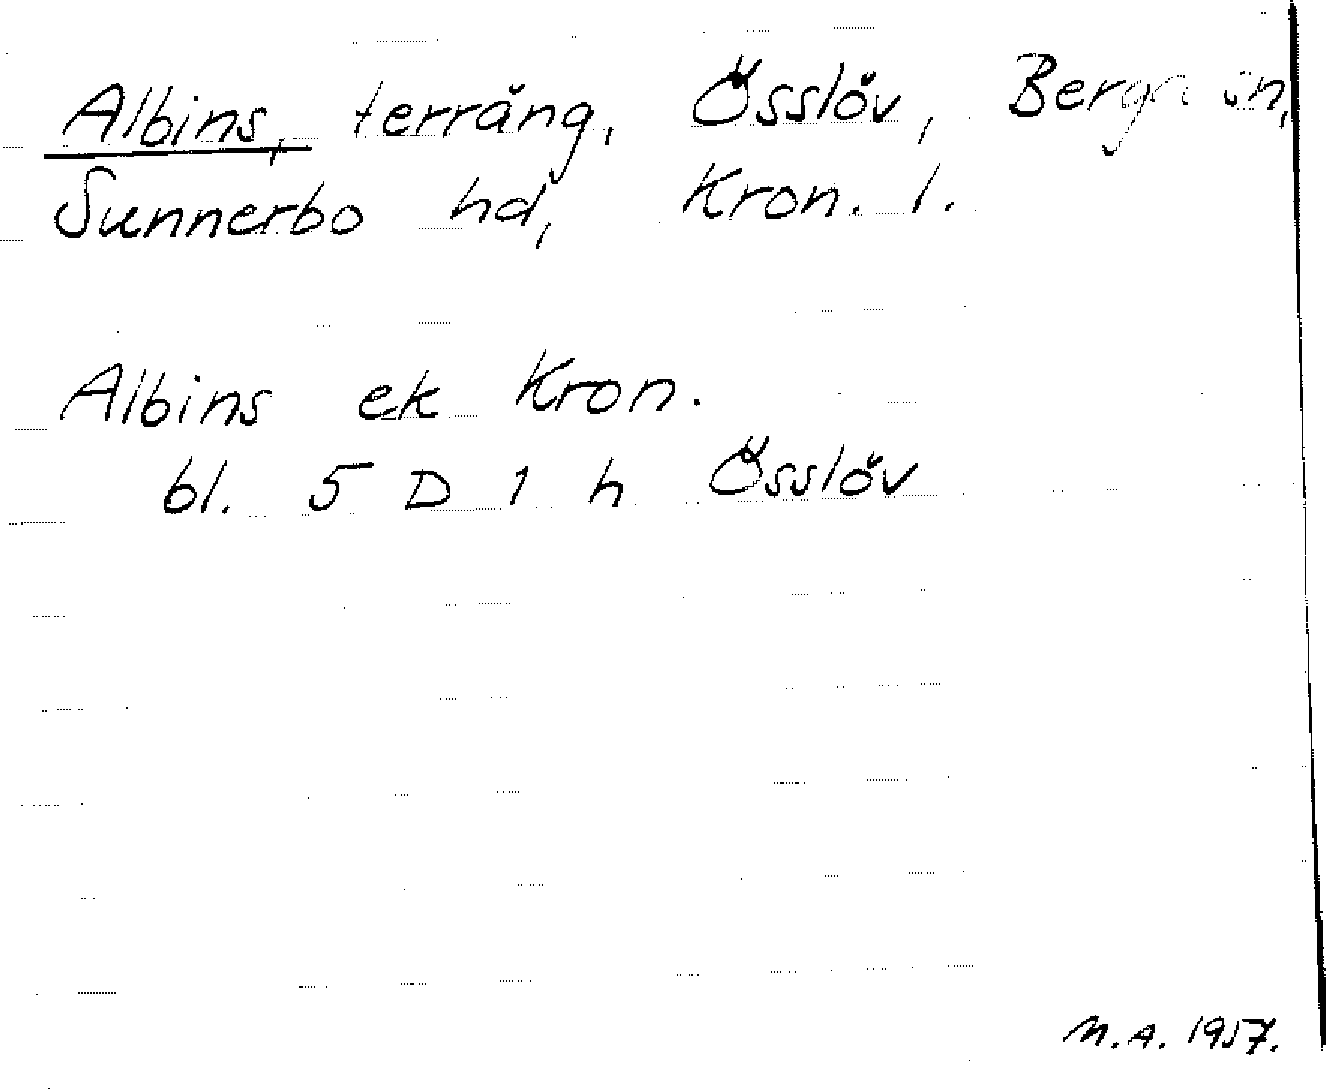 Albins, terräng, Össlöv, Berga sn,
Sunnerbo hd, Kron. l.
Albins ek Kron.
bl. 5 D 1 h Össlöv
M.A. 1957.